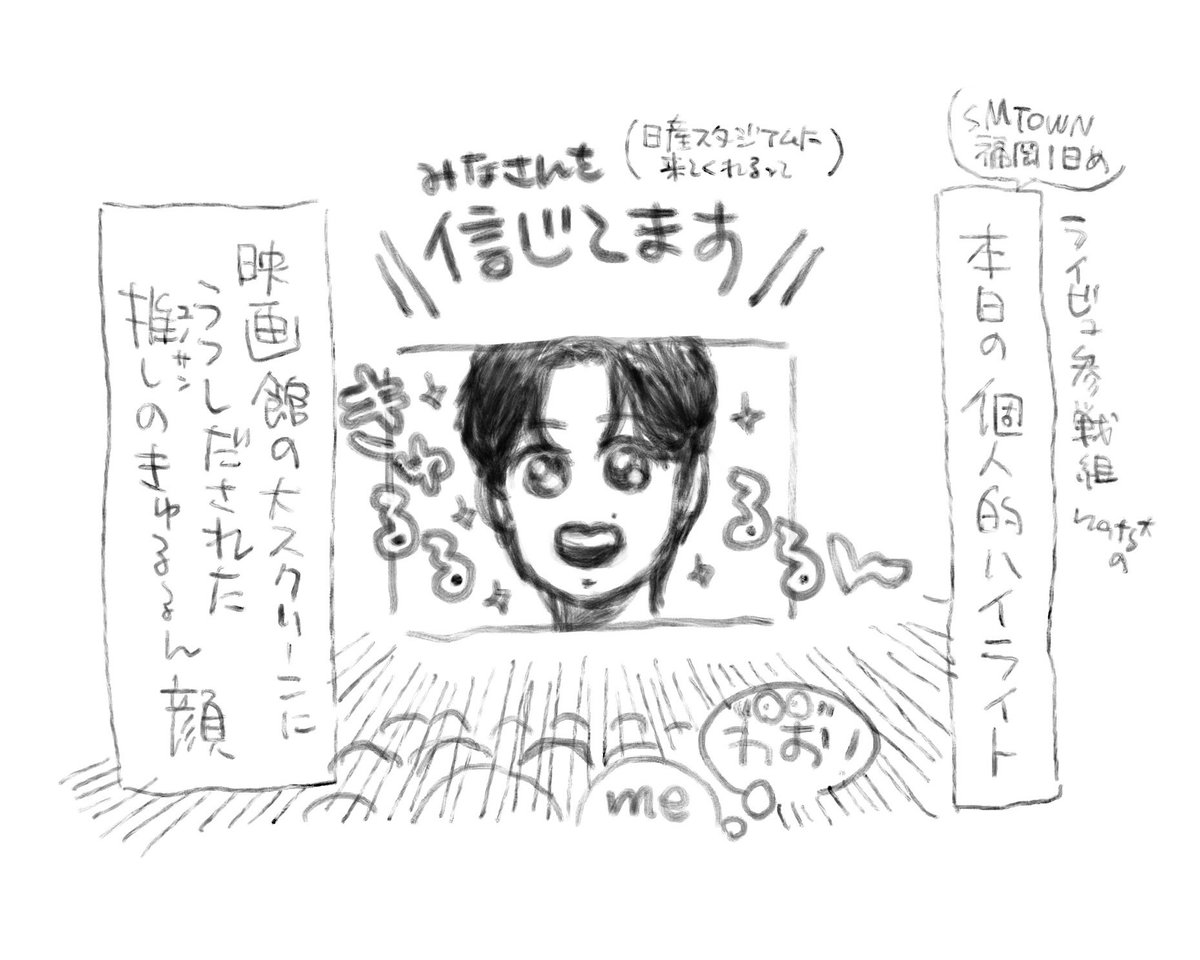 SMTOWN
福岡1日め
ライビュ参戦組
の
本日の個人的ハイライト
みなさんを
(日産スタジアムに
来てくれるって)
信じてます
きゅるるるるん
わお!!
me
映画館の大スクリーンに
うつしだされた
推しのきゅるるるん顔
ユンホ